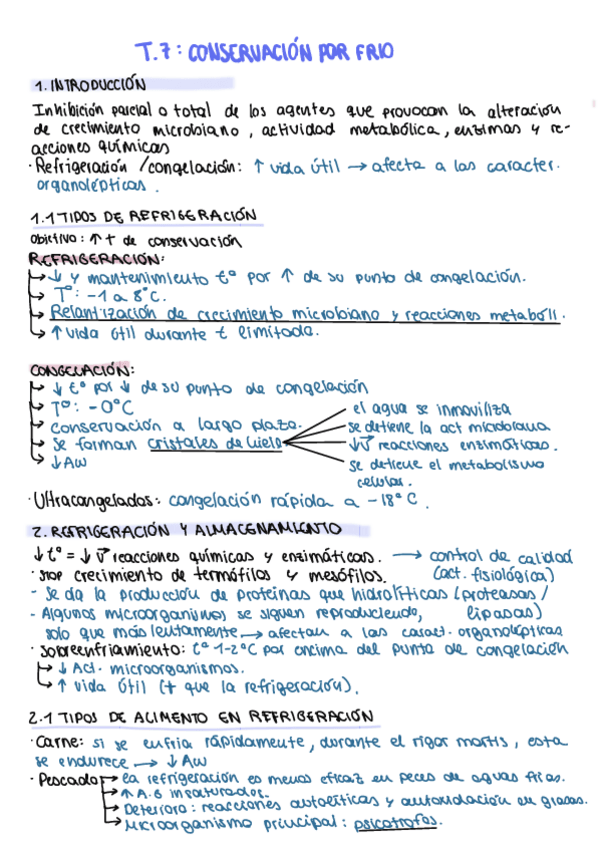 T.7: CONSERVACIÓN POR FRIO
1. INTRODUCCIÓN
Inhibición parcial o total de los agentes que provocan la alteración
de crecimiento microbiano, actividad metabólica, enzimas y re-
acciones químicas
· Refrigeración / congelación: ↑ vida útil → afecta a las caracter.
organolépticas.
1.1 TIPOS DE REFRIGERACIÓN
Objetivo: ↑ t de conservación
REFRIGERACIÓN:
↓ y mantenimiento tº por ↑ de su punto de congelación.
Tº: -1 a 8ºC.
Relantización de crecimiento microbiano y reacciones metaból.
↑ vida útil durante t limitada.
CONGELACIÓN:
↓ tº por ↓ de su punto de congelación
Tº: -0ºC
conservación a largo plazo.
se forman cristales de hielo
↓ Aw
el agua se inmoviliza
se detiene la act microbiana
↓v reacciones enzimáticas.
se detiene el metabolismo
celular.
· Ultracongelados: congelación rápida a -18ºC.
2. REFRIGERACIÓN Y ALMACENAMIENTO
↓ tº = ↓ v reacciones químicas y enzimáticas. → control de calidad
(act. fisiológica)
- Stop crecimiento de termófilos y mesófilos.
- Se da la producción de proteinas que hidrolíticas (proteasas /
lipasas)
- Algunos microorganismos se siguen reproduciendo,
solo que más lentamente → afectan a las caract. organolépticas
· Sobreenfriamiento: tº 1-2ºC por encima del punto de congelación
↓ Act. microorganismos.
↑ vida útil (+ que la refrigeración).
2.1 TIPOS DE ALIMENTO EN REFRIGERACIÓN
· Carne: si se enfria rápidamente, durante el rigor mortis, esta
se endurece → ↓ Aw
· Pescado
La refrigeración es menos eficaz en peces de aguas frias.
↑ A.G insaturados.
Deterioro: reacciones autolíticas y autoxidación en grasas.
Microorganismo principal: psicotrofos.